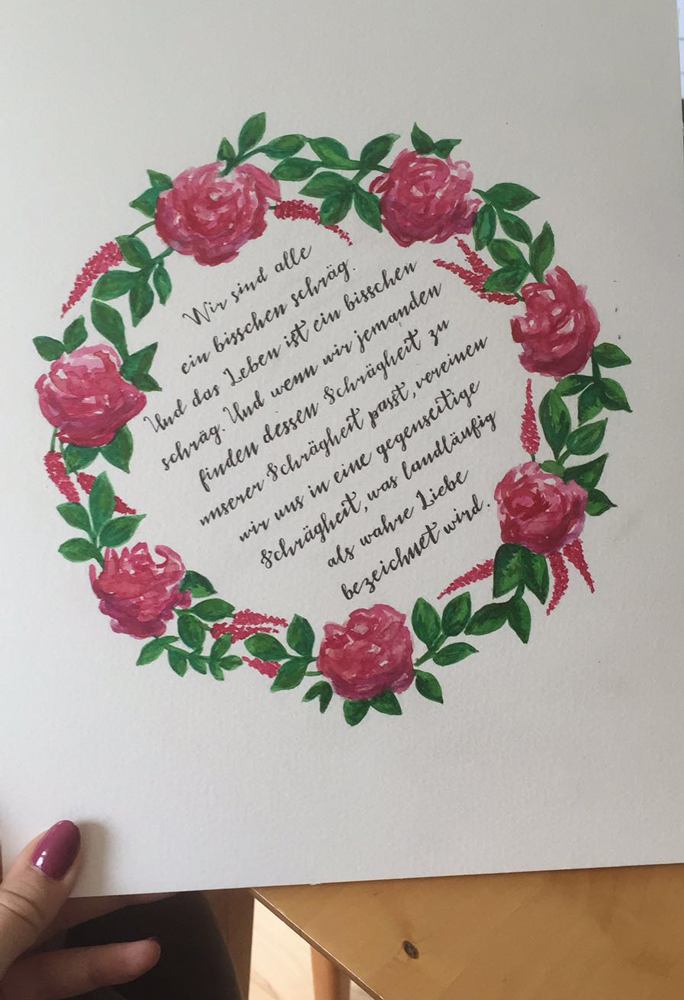 Wir sind alle
ein bisschen schräg.
Und das Leben ist ein bisschen
schräg. Und wenn wir jemanden
finden dessen Schrägheit zu
unserer Schrägheit passt, vereinen
wir uns in eine gegenseitige
Schrägheit, was landläufig
als wahre Liebe
bezeichnet wird.